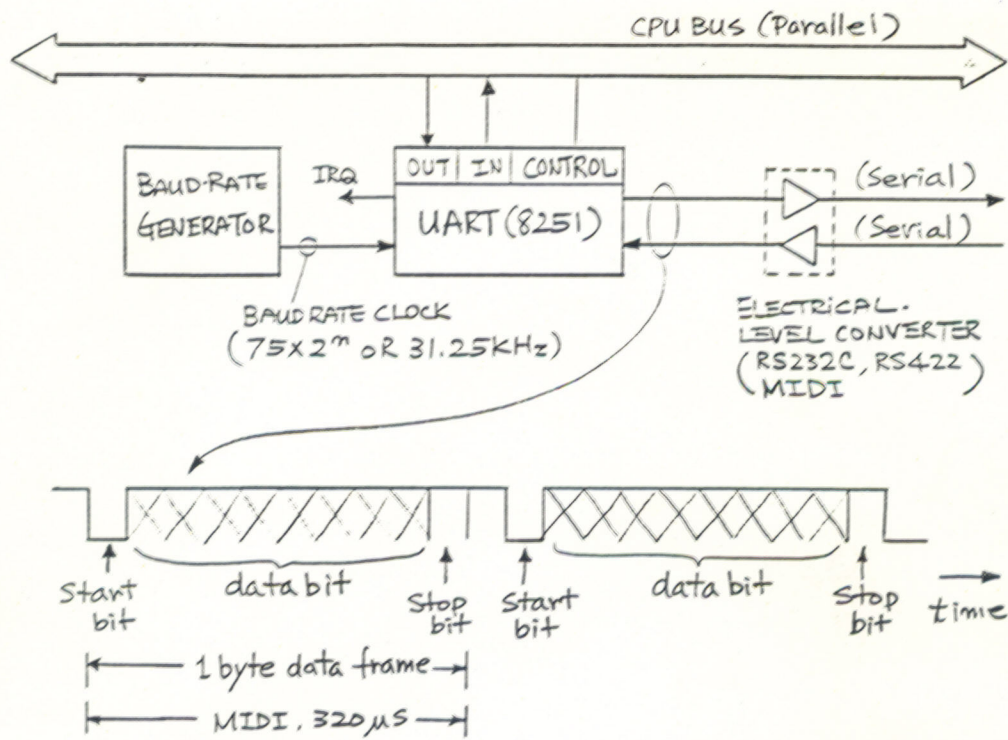 CPU BUS (Parallel)
BAUD-RATE
GENERATOR
IRQ
OUT IN CONTROL
UART (8251)
(Serial)
(Serial)
BAUDRATE CLOCK
(75×2ⁿ OR 31.25KHz)
ELECTRICAL-
LEVEL CONVERTER
(RS232C, RS422)
MIDI
Start
bit
data bit
Stop
bit
Start
bit
data bit
Stop
bit
time
1 byte data frame
MIDI. 320μS